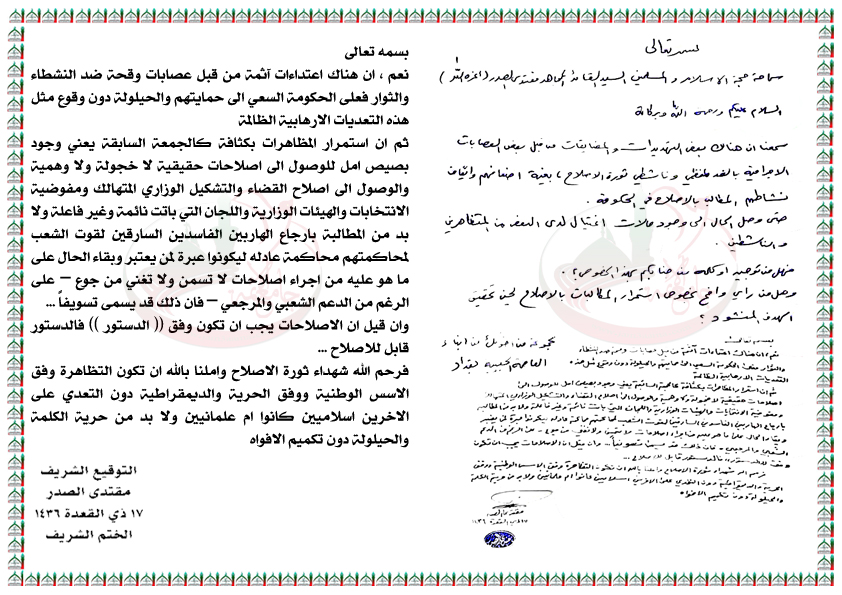 بسمه تعالى
سماحة حجة الاسلام و المسلمين السيد القائد المجاهد مقتدى الصدر (اعزه الله)
السلام عليكم ورحمة الله وبركاته
سمعنا ان هناك بعض التهديدات والمضايقات من قبل بعض العصابات
الاجرامية بالضد لمنظمي وناشطي ثورة الاصلاح، بغية اخفاتهم وايقاف
نشاطهم المطالب بالاصلاح في الحكومة.
حتى وصل الحال الى وجود حالات اغتيال لدى البعض من المتظاهرين
والناشطين.
فهل من توجيه او كلمة من جنابكم بهذا الخصوص؟.
وهل من راي واضح بخصوص استمرار المطالبات بالاصلاح لحين تحقيق
الهدف المنشود؟
مجموعة من اخوتك من ابناء
العاصمة الحبيبة بغداد
بسمه تعالى
نعم، ان هناك اعتداءات آثمة من قبل عصابات وقحة ضد النشطاء
والثوار فعلى الحكومة السعي الى حمايتهم والحيلولة دون وقوع مثل هذه
التعديات الارهابية الظالمة
مقتدى الصدر
بسمه تعالى
نعم ، ان هناك اعتداءات آثمة من قبل عصابات وقحة ضد النشطاء
والثوار فعلى الحكومة السعي الى حمايتهم والحيلولة دون وقوع مثل
هذه التعديات الارهابية الظالمة
ثم ان استمرار المظاهرات بكثافة كالجمعة السابقة يعني وجود
بصيص امل للوصول الى اصلاحات حقيقية لا خجولة ولا وهمية
والوصول الى اصلاح القضاء والتشكيل الوزاري المتهالك ومفوضية
الانتخابات والهيئات الوزارية واللجان التي باتت نائمة وغير فاعلة ولا
بد من المطالبة بارجاع الهاربين الفاسدين السارقين لقوت الشعب
لمحاكمتهم محاكمة عادله ليكونوا عبرة لمن يعتبر وبقاء الحال على
ما هو عليه من اجراء اصلاحات لا تسمن ولا تغني من جوع – على
الرغم من الدعم الشعبي والمرجعي – فان ذلك قد يسمى تسويفاً ...
وان قيل ان الاصلاحات يجب ان تكون وفق (( الدستور )) فالدستور
قابل للاصلاح ...
فرحم الله شهداء ثورة الاصلاح واملنا بالله ان تكون التظاهرة وفق
الاسس الوطنية ووفق الحرية والديمقراطية دون التعدي على
الاخرين اسلاميين كانوا ام علمانيين ولا بد من حرية الكلمة
والحيلولة دون تكميم الافواه
التوقيع الشريف
مقتدى الصدر
١٧ ذي القعدة ١٤٣٦
الختم الشريف